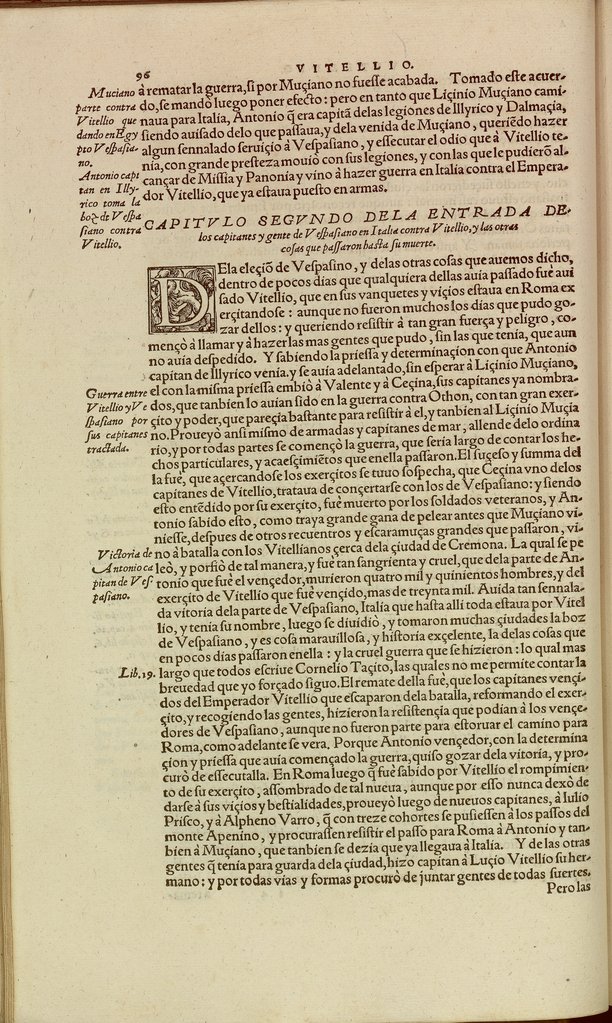 96
VITELLIO.
Muciano
parte contra
Vitellio que
dando en Egy
pto Veſpaſia-
no.
Antonio capi
tan en Illy-
rico toma la
boz de Veſpa
ſiano contra
Vitellio.
à rematar la guerra, ſi por Muçiano no fueſſe acabada. Tomado eſte acuer-
do, ſe mandò luego poner efecto: pero en tanto que Liçinio Muçiano cami-
naua para Italia, Antonio q̃ era capitã delas legiones de Illyrico y Dalmaçia,
ſiendo auiſado delo que paſſaua, y dela venida de Muçiano, queriẽdo hazer
algun ſennalado ſeruiçio à Veſpaſiano, y eſſecutar el odio que à Vitellio te-
nía, con grande preſteza mouiò con ſus legiones, y con las que le pudierõ al-
cançar de Miſſia y Panonía y vino à hazer guerra en Italia contra el Empera-
dor Vitellio, que ya eſtaua pueſto en armas.
CAPITVLO SEGVNDO DELA ENTRADA DE-
los capitanes y gente de Veſpaſiano en Italia contra Vitellio, y las otras
coſas que paſſaron haſta ſu muerte.
DEla eleçiõ de Veſpaſino, y delas otras coſas que auemos dicho,
dentro de pocos dias que qualquiera dellas auía paſſado fuè aui
ſado Vitellio, que en ſus vanquetes y viçios eſtaua en Roma ex
erçitandoſe: aunque no fueron muchos los dias que pudo go-
zar dellos: y queriendo reſiſtir à tan gran fuerça y peligro, co-
mençò à llamar y à hazer las mas gentes que pudo, ſin las que tenía, que aun
no auía deſpedido. Y ſabiendo la prieſſa y determinaçion con que Antonio
capitan de Illyrico venía, y ſe auía adelantado, ſin eſperar à Liçinio Muçiano,
el con la miſma prieſſa embiò à Valente y à Ceçina, ſus capitanes ya nombra-
dos, que tanbien lo auían ſido en la guerra contra Othon, con tan gran exer-
çito y poder, que pareçía baſtante para reſiſtir à el, y tanbien al Liçinio Muçia
no. Proueyò anſi miſmo de armadas y capitanes de mar, allende delo ordina
rio, y por todas partes ſe començò la guerra, que ſería largo de contar los he-
chos particulares, y acaeſçimiẽtos que enella paſſaron. El ſuçeſo y ſumma del
la fuè, que açercandoſe los exerçitos ſe tuuo ſoſpecha, que Ceçina vno delos
capitanes de Vitellio, trataua de conçertarſe con los de Veſpaſiano: y ſiendo
eſto entẽdido por ſu exerçito, fuè muerto por los ſoldados veteranos, y An-
tonio ſabido eſto, como traya grande gana de pelear antes que Muçiano vi-
nieſſe, deſpues de otros recuentros y eſcaramuças grandes que paſſaron, vi-
no à batalla con los Vitellianos çerca dela çiudad de Cremona. La qual ſe pe
leò, y porfiò de tal manera, y fuè tan ſangrienta y cruel, que dela parte de An-
tonio que fuè el vençedor, murieron quatro mil y quinientos hombres, y del
exerçito de Vitellio que fuè vençido, mas de treynta mil. Auida tan ſennala-
da vitoria dela parte de Veſpaſiano, Italia que haſta alli toda eſtaua por Vitel
lio, y tenía ſu nombre, luego ſe diuidiò, y tomaron muchas çiudades la boz
de Veſpaſiano, y es coſa marauilloſa, y hiſtoria exçelente, la delas coſas que
en pocos dias paſſaron enella: y la cruel guerra que ſe hizieron: lo qual mas
largo que todos eſcriue Cornelio Taçito, las quales no me permite contar la
breuedad que yo forçado ſiguo. El remate della fuè, que los capitanes vençi-
dos del Emperador Vitellio que eſcaparon dela batalla, reformando el exer-
çito, y recogiendo las gentes, hizieron la reſiſtençia que podian à los vençe-
dores de Veſpaſiano, aunque no fueron parte para eſtoruar el camino para
Roma, como adelante ſe vera. Porque Antonio vençedor, con la determina
çion y prieſſa que auía començado la guerra, quiſo gozar dela vitoria, y pro-
curò de eſſecutalla. En Roma luego q̃ fuè ſabido por Vitellio el rompimien-
to de ſu exerçito, aſſombrado de tal nueua, aunque por eſſo nunca dexò de
darſe à ſus viçios y beſtialidades, proueyò luego de nueuos capitanes, à Iulio
Priſco, y à Alpheno Varro, q̃ con treze cohortes ſe puſieſſen à los paſſos del
monte Apenino, y procuraſſen reſiſtir el paſſo para Roma à Antonio y tan-
bien à Muçiano, que tanbien ſe dezia que ya llegaua à Italia. Y de las otras
gentes q̃ tenía para guarda dela çiudad, hizo capitan à Luçio Vitellio ſu her-
mano: y por todas vías y formas procurò de juntar gentes de todas ſuertes.
Pero las
Guerra entre
Vitellio y Ve
ſpaſiano por
ſus capitanes
tractada.
Victoria de
Antonio ca
pitan de Veſ
paſiano.
Lib. 19.